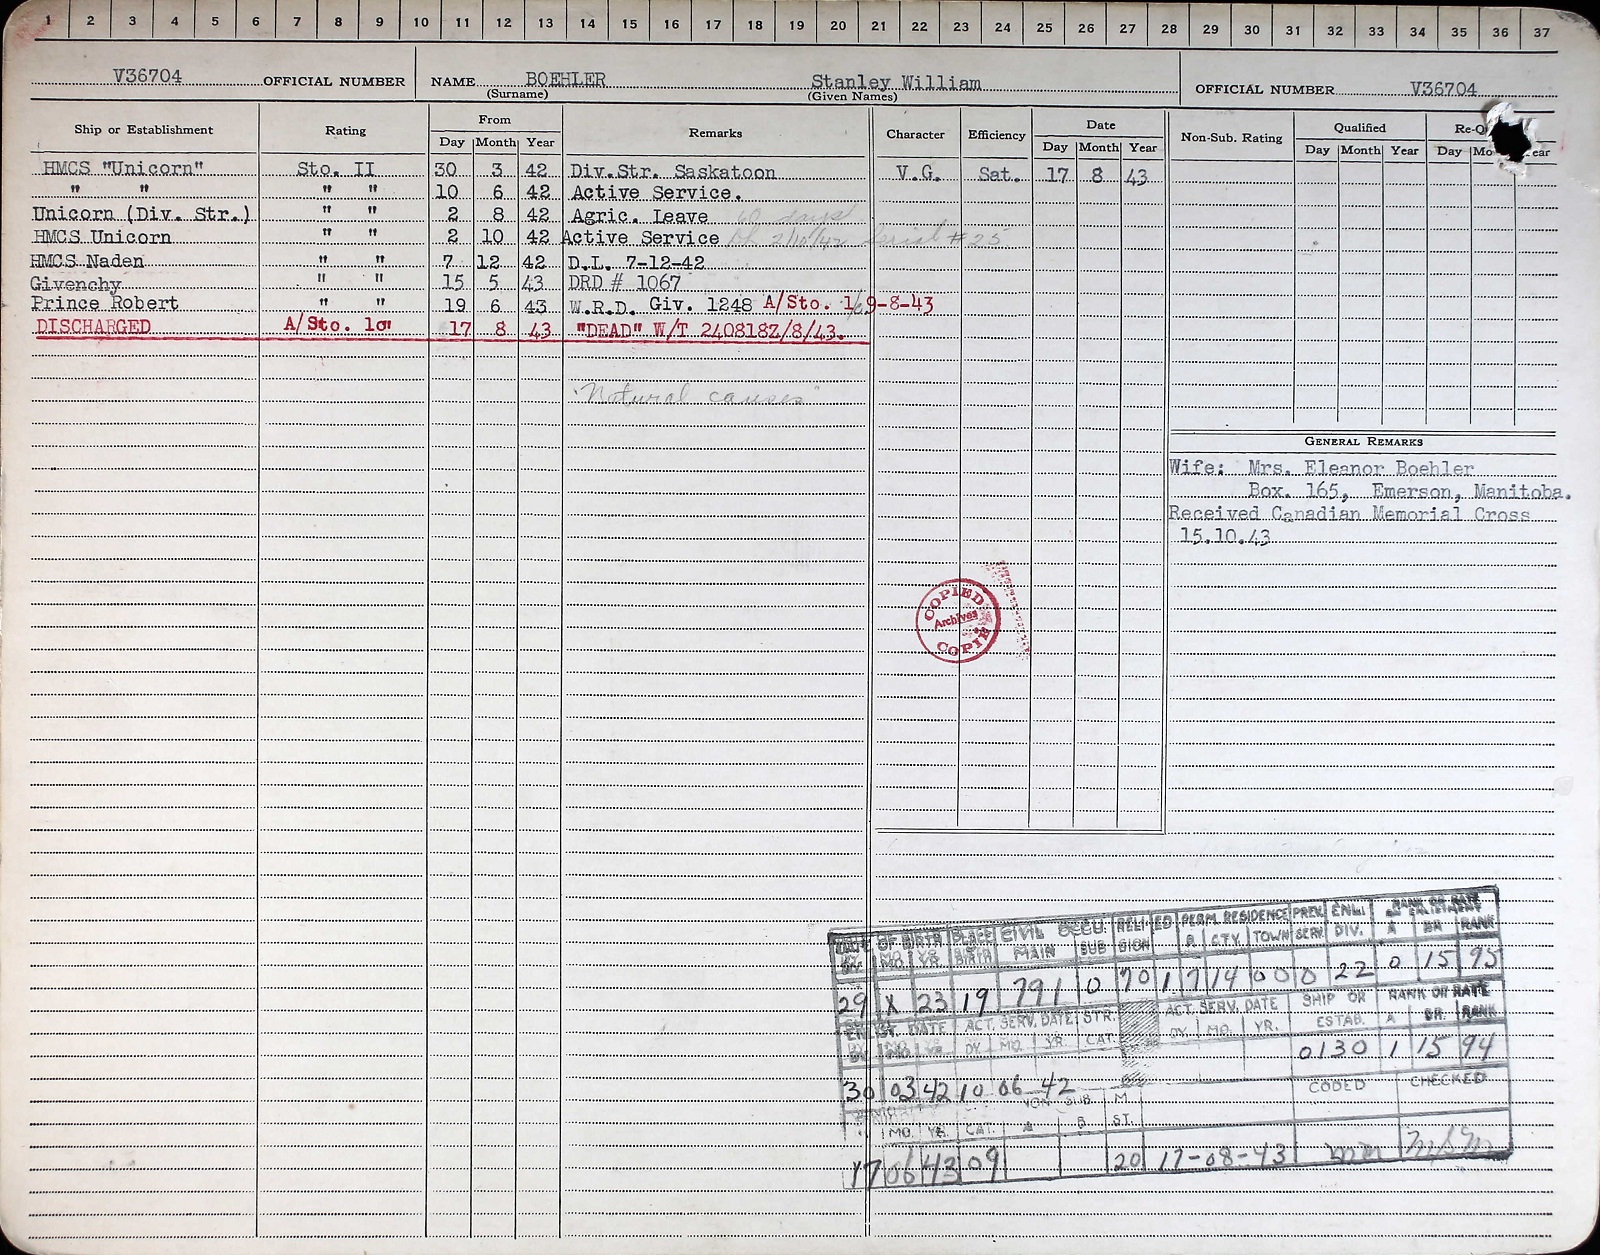 1 2 3 4 5 6 7 8 9 10 11 12 13 14 15 16 17 18 19 20 21 22 23 24 25 26 27 28 29 30 31 32 33 34 35 36 37
V36704 OFFICIAL NUMBER NAME BOEHLER Stanley William OFFICIAL NUMBER V36704
(Surname) (Given Names)
Ship or Establishment Rating From Remarks Character Efficiency Date Non-Sub. Rating Qualified
Day Month Year Day Month Year Day Month Year Day
HMCS "Unicorn" Sto. II 30 3 42 Div.Str. Saskatoon V.G. Sat. 17 8 43
" " " " 10 6 42 Active Service.
Unicorn (Div. Str.) " " 2 8 42 Agric. Leave 60 days
HMCS Unicorn " " 2 10 42 Active Service 2/10/42 Serial #25
HMCS Naden " " 7 12 42 D.L. 7-12-42
Givenchy " " 15 5 43 DRD # 1067
Prince Robert " " 19 6 43 W.R.D. Giv. 1248 A/Sto. 1/c 9-8-43
DISCHARGED A/Sto. 1c" 17 8 43 "DEAD" W/T 240818Z/8/43.
"Natural causes"
GENERAL REMARKS
Wife: Mrs. Eleanor Boehler
Box. 165, Emerson, Manitoba.
Received Canadian Memorial Cross
15.10.43
COPIED
Archives
COPIE
OF BIRTH PLACE CIVIL OCCU. RELI- ED PERM. RESIDENCE PREV. ENLI. RANK OR RATE
MO. YR. BIRTH MAIN SUB GION B. CTY. TOWN SERV. DIV. A BR RANK
29 X 23 19 791 0 70 1 7 14 00 0 22 0 15 95
ENLIST. DATE ACT. SERV. DATE STR. ACT. SERV. DATE SHIP OR RANK OR RATE
DY. MO. YR. CAT. DY. MO. YR. ESTAB. A BR. RANK
0130 1 15 94
30 03 42 10 06 42 CODED CHECKED
NON SUB. M
MO. YR. CAT. A B. ST.
17 06 43 09 20 17-08-43